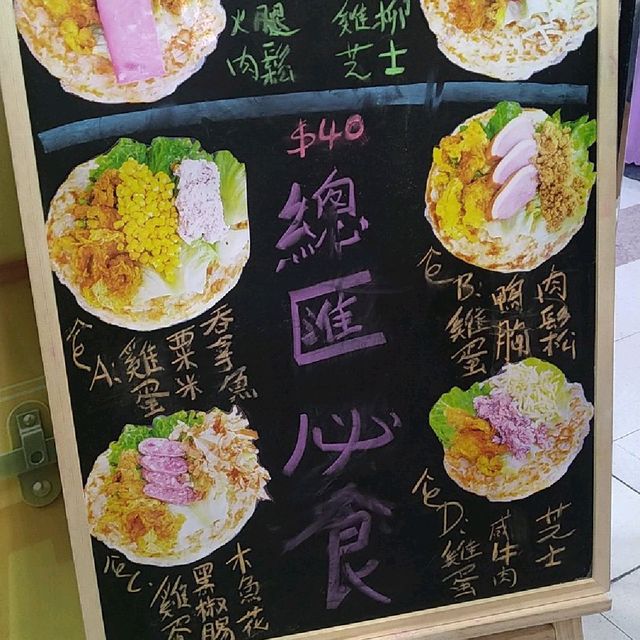 火腿
肉鬆
雞柳
芝士
$40
總匯必食
仓A:雞蛋
粟米
吞享魚
仓B:雞蛋
鴨胸
肉鬆
仓C:雞蛋
黑椒腸
木魚花
仓D:雞蛋
咸牛肉
芝士